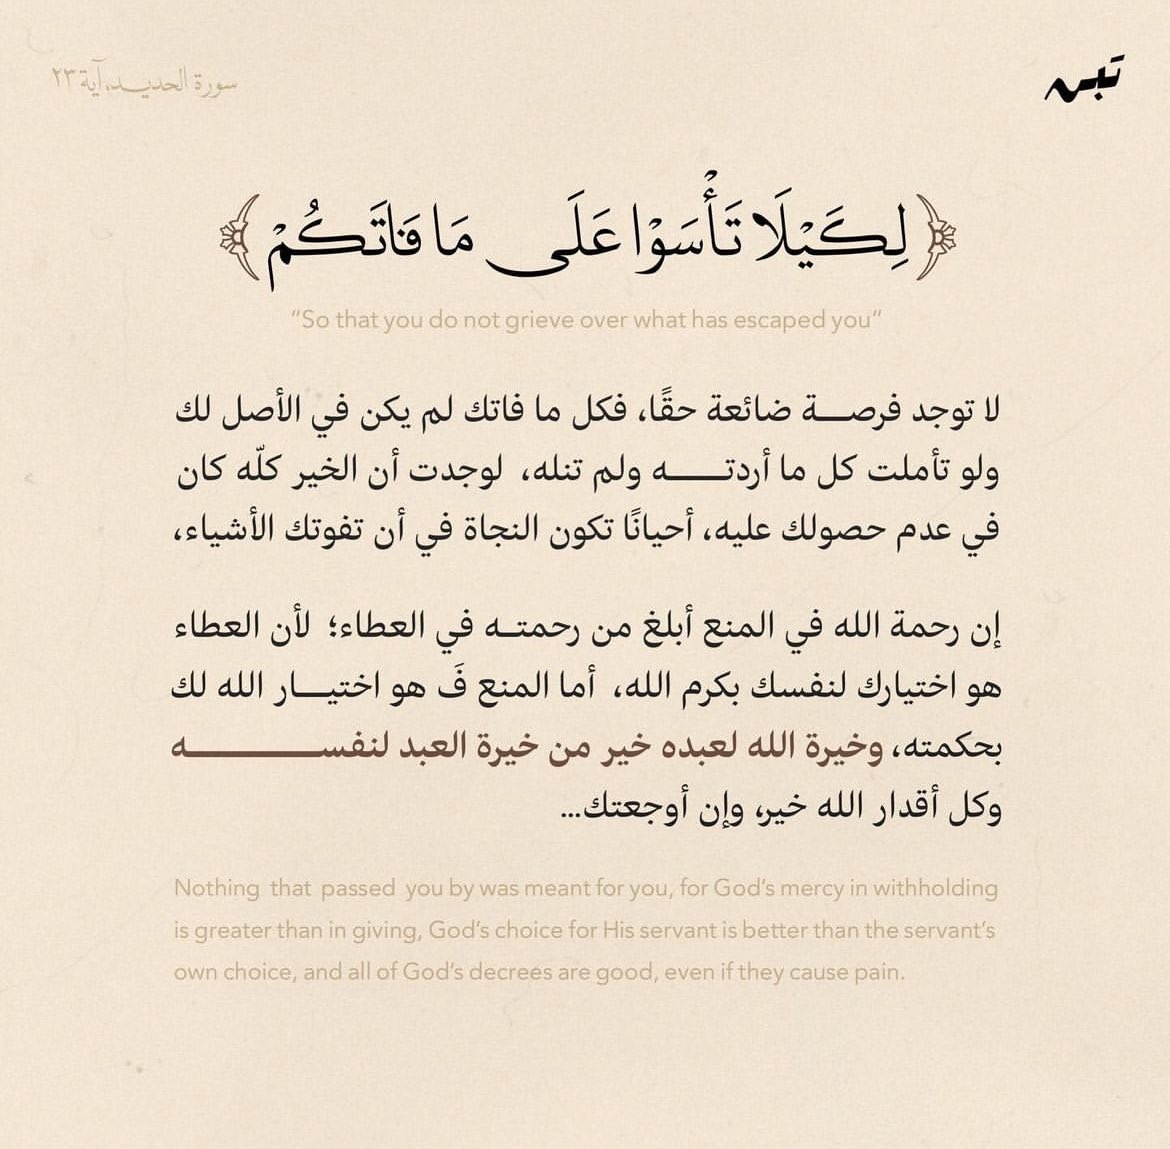 سورة الحديد، آية ٢٣
﴿لِكَيْلَا تَأْسَوْا عَلَى مَا فَاتَكُمْ﴾
“So that you do not grieve over what has escaped you“
لا توجد فرصـــة ضائعة حقًا، فكل ما فاتك لم يكن في الأصل لك
ولو تأملت كل ما أردتـــــه ولم تنله، لوجدت أن الخير كلّه كان
في عدم حصولك عليه، أحيانًا تكون النجاة في أن تفوتك الأشياء،
إن رحمة الله في المنع أبلغ من رحمتـه في العطاء؛ لأن العطاء
هو اختيارك لنفسك بكرم الله، أما المنع فَ هو اختيـــار الله لك
بحكمته، وخيرة الله لعبده خير من خيرة العبد لنفســـــــــــه
وكل أقدار الله خير، وإن أوجعتك...
Nothing that passed you by was meant for you, for God’s mercy in withholding
is greater than in giving, God’s choice for His servant is better than the servant’s
own choice, and all of God’s decrees are good, even if they cause pain.